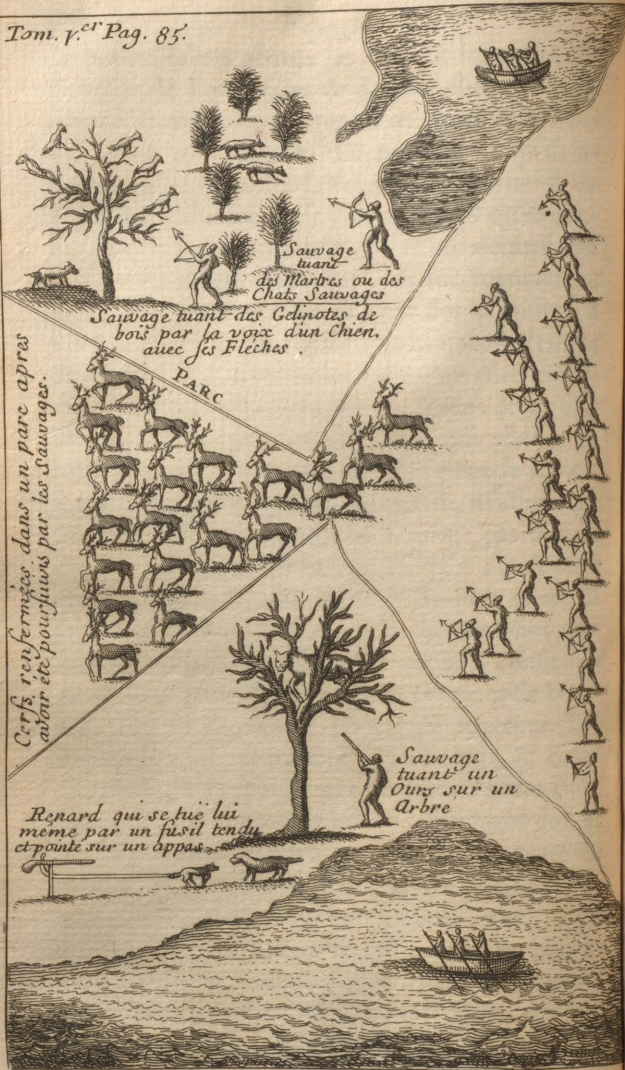 Tom. 1.er Pag. 85.
Sauvage
tuant
des Martres ou des
Chats Sauvages
Sauvage tuant des Gelinotes de
bois par la voix d'un Chien.
avec ses Fléches.
PARC
Cerfs renfermèzes dans un parc apres
avoir été poursuivis par les Sauvages.
Sauvage
tuant un
Ours sur un
Arbre
Renard qui se tuë lui
même par un fusil tendu
et pointé sur un appas